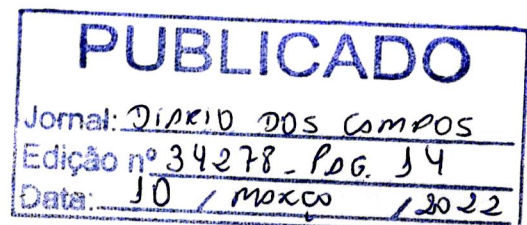 PUBLICADO
Jornal: DIÁRIO DOS CAMPOS
Edição nº 34278 - PÁG. 14
Data: 10 / MARÇO / 2022